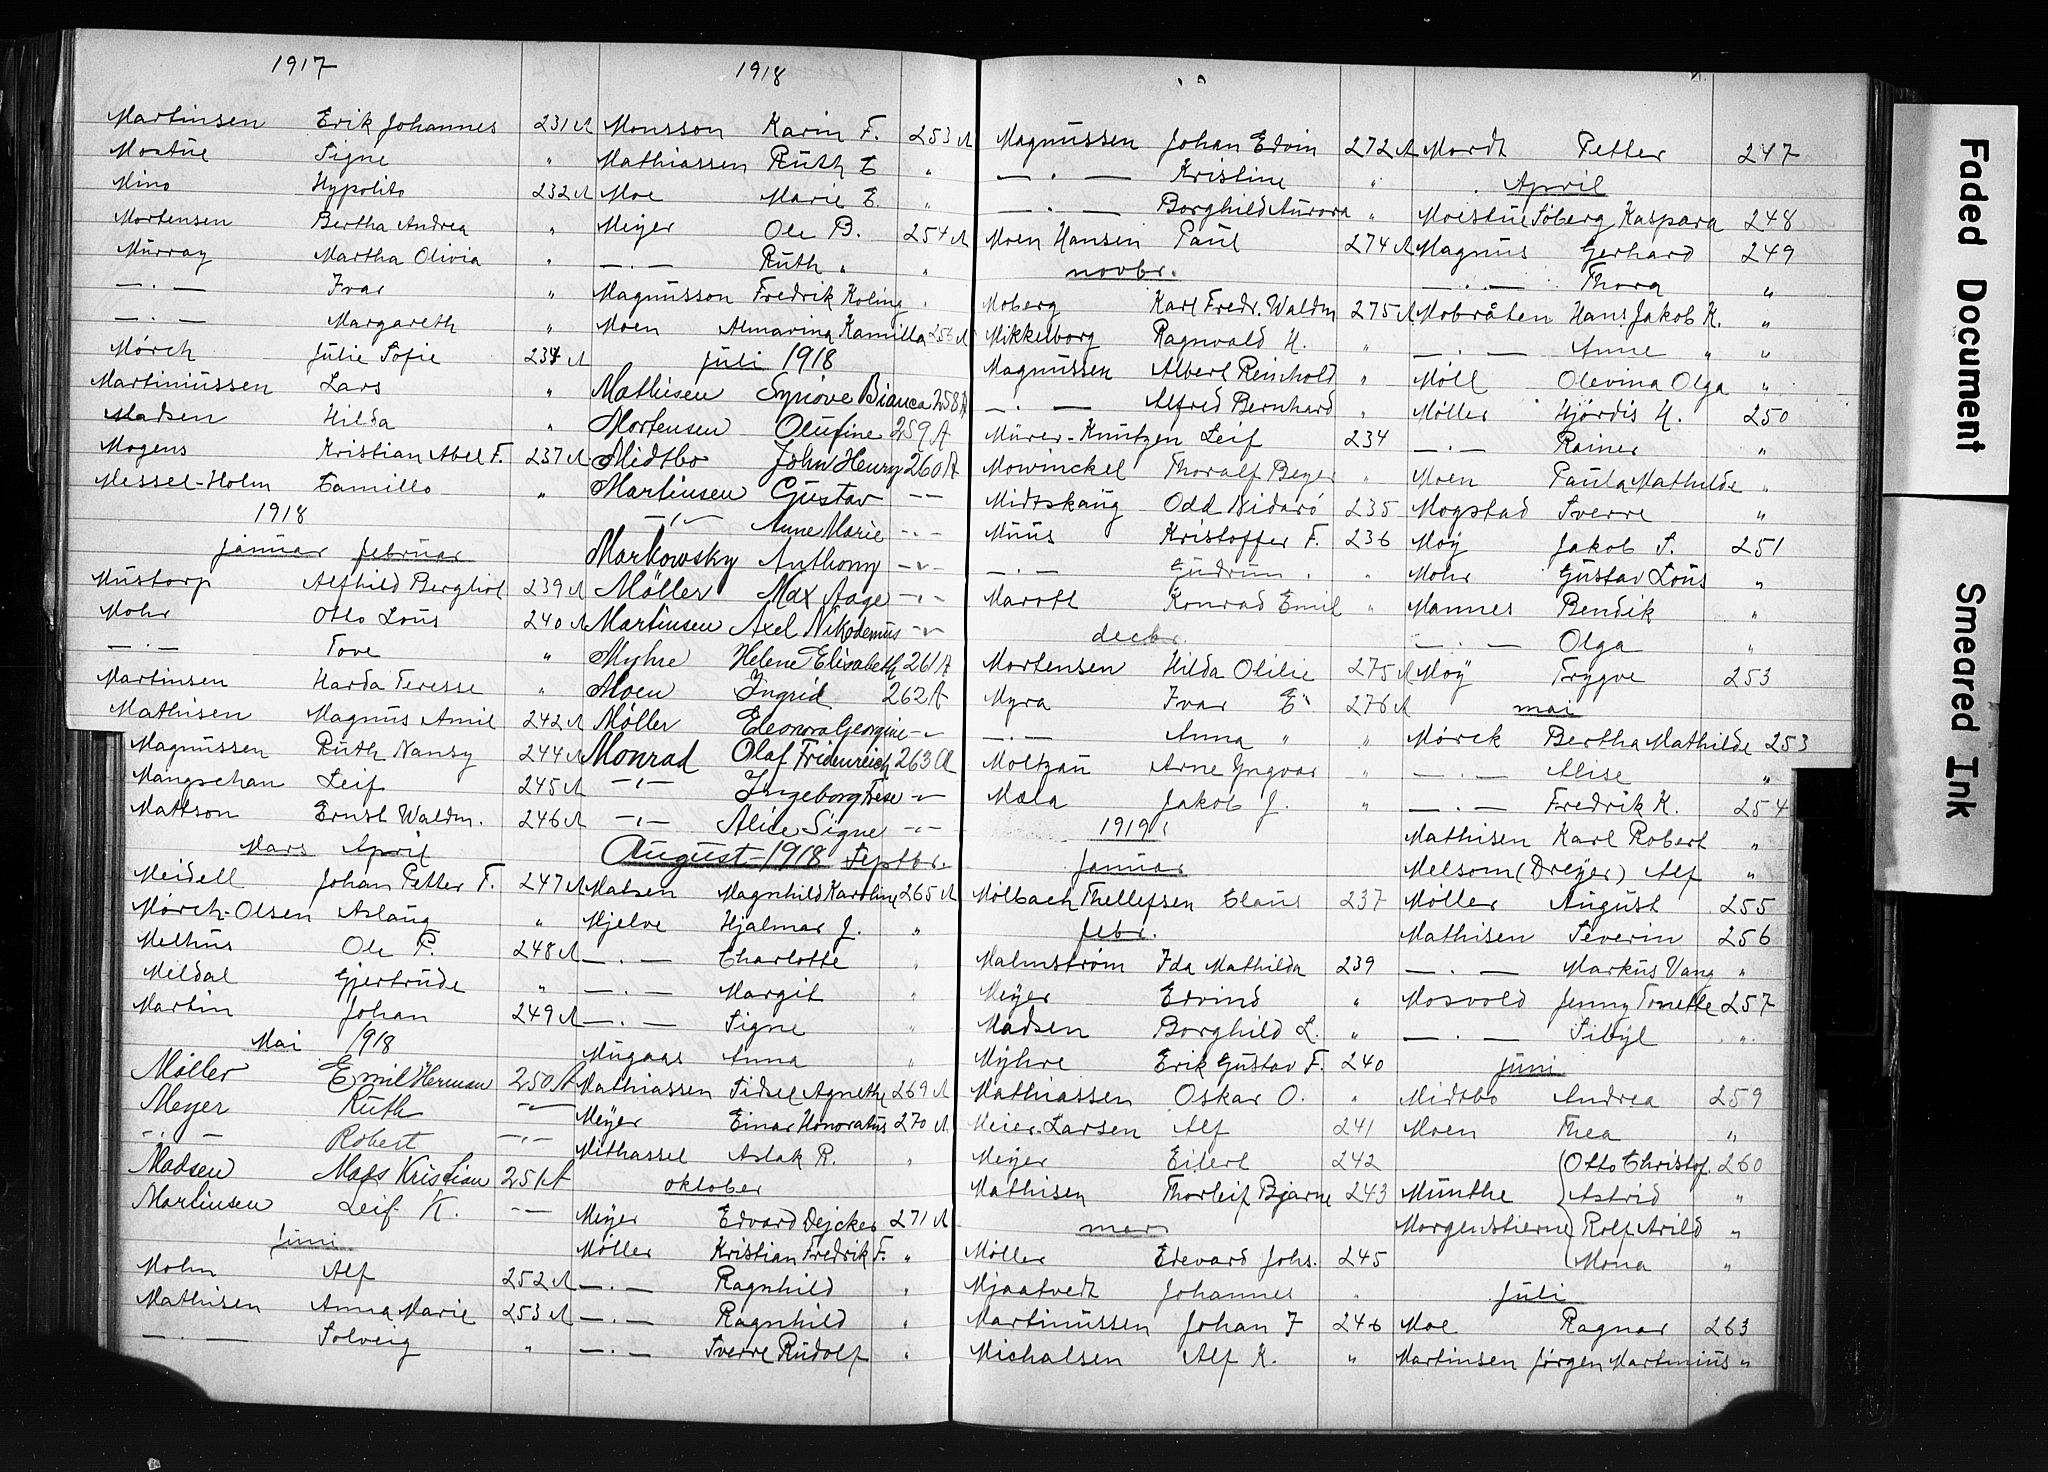 1917
Martinsen Erik Johannes 231 A
Mostue Signe "
Mino Hypolito 232 A
Mortensen Bertha Andrea "
Murray Martha Olivia "
— . — Ivar "
— . — Margareth "
Mørch Julie Sofie 234 A
Martiniussen Lars "
Madsen Hilda "
Mogens Kristian Abel F. 237 A
Messel-Holm Camillo "
1918
januar februar
Mustorp Alfhild Berghiot 239 A
Mohr Otto Lous 240 A
— . — Tove "
Martinsen Harda Teresse "
Mathisen Magnus Amil 242 A
Magnussen Ruth Nansy 244 A
Mangschau Leif 245 A
Mattson Ernst Waldm. 246 A
Mars April
Meidell Johan Petter F. 247 A
Mørch-Olsen Aslaug "
Melhus Ole P. 248 A
Meldal Gjertrude "
Martin Johan 249 A
Mai 1918
Møller Emil Herman 250 A
Meyer Ruth — " —
— . — Robert — " —
Madsen Mads Kristian 251 A
Martinsen Leif K. — " —
Juni
Mohn Alf 252 A
Mathisen Anna Marie 253 A
— . — Solveig "
1918
Monsson Karin F. 253 A
Mathiassen Ruth E "
Moe Marie E. "
Meyer Ole B. 254 A
— . — Ruth " "
Magnusson Fredrik Koling "
Moen Almarina Kamilla
juli 1918
Mathisen Synnøve Bianca 258 A
Mortensen Olufine 259 A
Midtbo John Henry 260 A
Martinsen Gustav — " —
— " — Anne Marie — " —
Markowsky Anthony — " —
Møller Max Aage — " —
Martinsen Axel Nikodemus — " —
Myhre Helene Elisabeth 261 A
Moen Ingrid 262 A
Møller Eleonora Georgine — " —
Monrad Olaf Fridenreich 263 A
— " — Ingeborg Frese — " —
— " — Alice Signe — " —
August 1918 Septbr.
Madsen Magnhild Karoline 265 A
Mjelve Hjalmar J. "
— . — Charlotte "
— . — Margit "
— . — Signe "
Mugaas Anna "
Mathiassen Sidsel Agnethe 269 A
Meyer Einar Honoratus 270 A
Mithassel Aslak R. "
oktober
Meyer Edvard Dejcker 271 A
Møller Kristian Fredrik F. "
— . — Ragnhild "
— . — Ragnhild "
— . — Sverre Rudolf "
Magnussen Johan Edvin 272 A
— . — Kristine "
— . — Borghild Aurora "
Moen Hansen Paul 274 A
novbr.
Moberg Karl Fredr. Waldm 275 A
Mikkelborg Ragnvald H. "
Magnussen Albert Reinhold "
— . — Alfred Bernhard "
Murer-Knutzen Leif 234
Mowinckel Thoralf Beyer "
Midtskaug Odd Nidarø 235
Muus Kristoffer F. 236
— . — Gudrun " "
Marott Konrad Emil "
decbr.
Mortensen Hilda Otilie 275 A
Myra Ivar E. 276 A
— . — Anna " "
Moltzau Arne Yngvar "
Mæla Jakob J. "
1919
januar
Mølbach Thellefsen Claus 237
febr.
Malmstrøm Ida Mathilda 239
Meyer Edvind "
Madsen Borghild L. "
Myhre Erik Gustav F. 240
Mathiassen Oskar O. "
Meier-Larsen Alf 241
Meyer Eilert 242
Mathisen Thorleif Bjarne 243
mars
Møller Edevard Johs. 245
Mjaatvedt Johannes "
Martinussen Johan F 246
Mishalsen Alf K. "
Mordt Petter 247
April
Moestue Søberg Kaspara 248
Magnus Gerhard 249
— . — Thora "
Mobråten Hans Jakob K. "
— . — Anne " "
Møll Olevina Olga "
Møller Hjørdis H. 250
— . — Rainer "
Moen Paula Mathilde "
Mogstad Sverre "
Moy Jakob S. 251
Mohr Gustav Lous "
Mannes Bendik "
— . — Olga "
Moy Trygve 253
mai
Mørck Bertha Mathilde 253
— . — Alise "
— . — Fredrik K. 254
Mathisen Karl Robert "
Melsom (Dreyer) Alf "
Møller August 255
Mathisen Severin 256
— . — Markus Vang "
Mosvold Jenny Tonette 257
— . — Sibyl "
juni
Midtbo Andrea 259
Moen Thea "
Munthe Morgenstierne ( Otto Christof. 260
Astrid "
Rolf Arild "
Mona "
Juli
Moe Ragnar 263
Martinsen Jørgen Martinius "
Faded Document
Smeared Ink